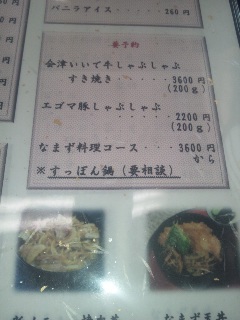 バニラアイス・・・・・260円
要予約
会津いいで牛しゃぶしゃぶ
すき焼き・・・・・3600円
(200g)
エゴマ豚しゃぶしゃぶ
・・・・・2200円
(200g)
なまず料理コース・・・3600円
から
※すっぽん鍋(要相談)
なまず天丼